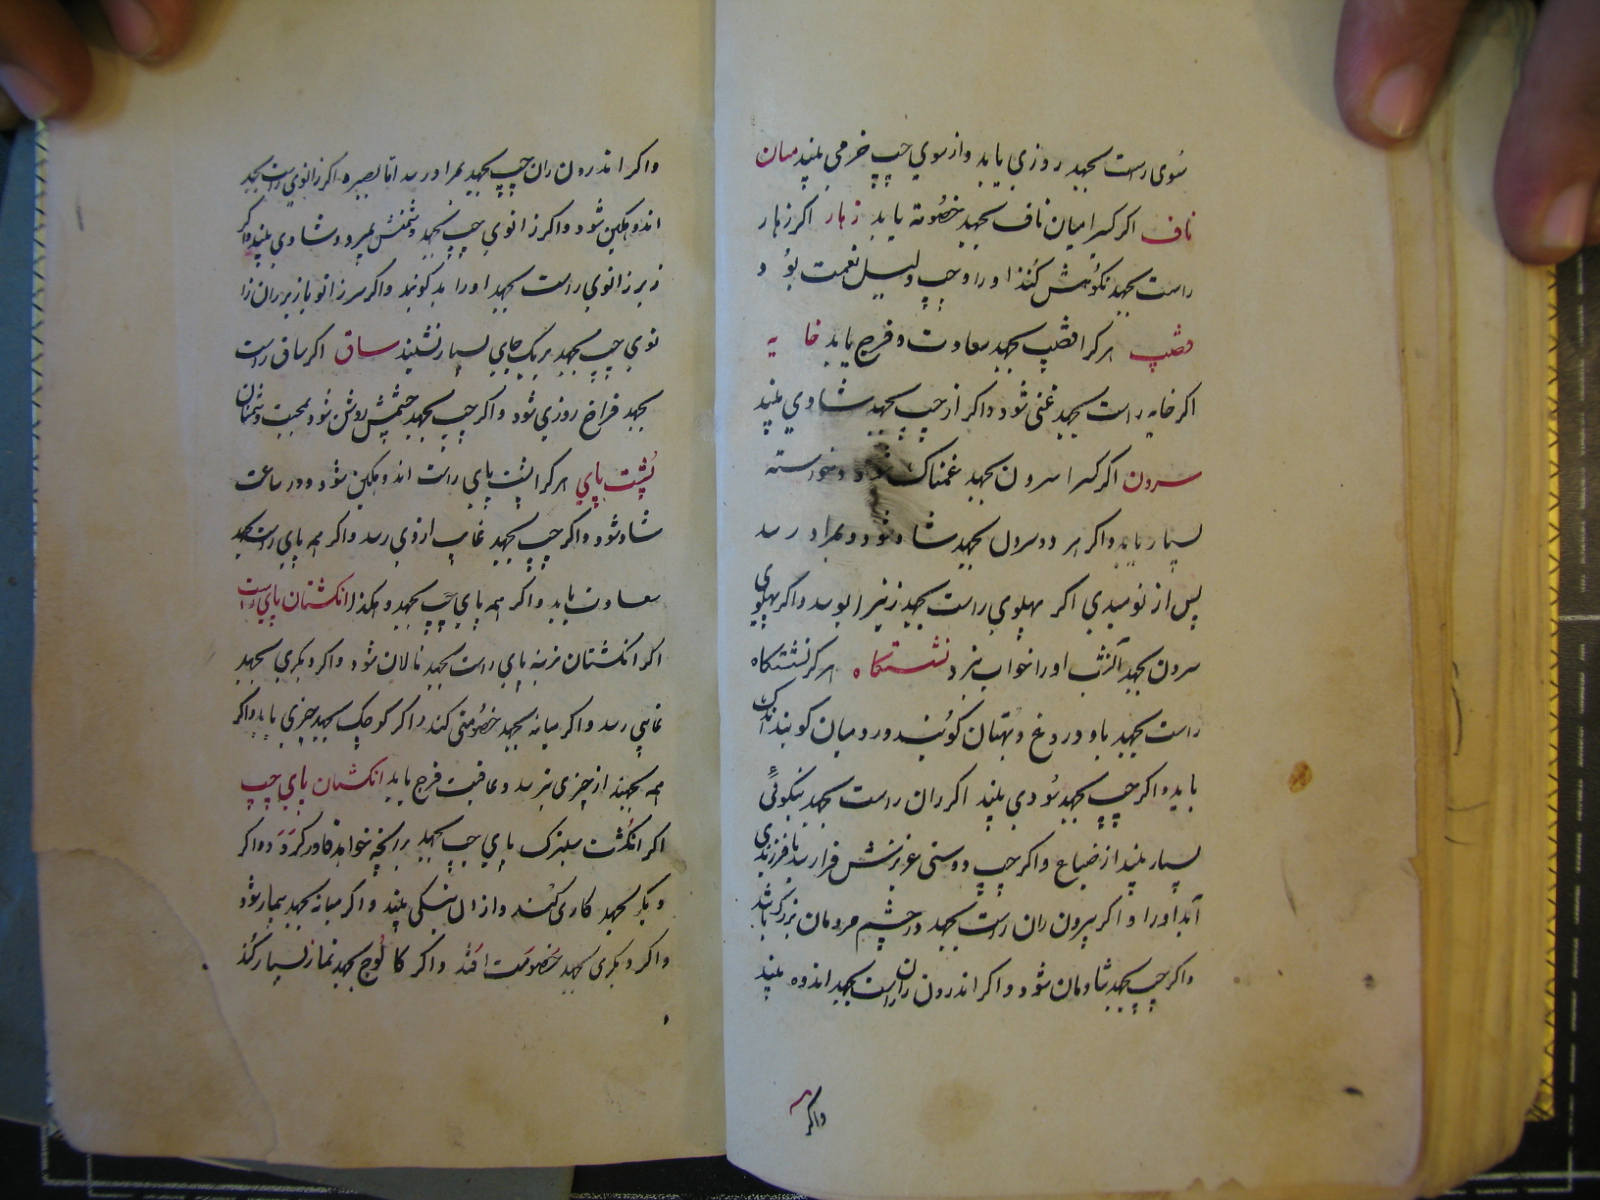 سوی راست بجهد روزی یابد و از سوی چپ خرمی بیند میان
ناف اگر کسرا میان ناف بجهد خصومة یابد زهار اگر زهار
راست بجهد نکوهش کنند او را و چپ دلیل نعمت بود
قضیب هر کرا قضیب بجهد سعادت و فرح یابد خایه
اگر خایه راست بجهد غنی شود و اگر از چپ بجهد شادی بیند
سرون اگر کسرا سرون بجهد غمناک شود و
بسیار یابد و اگر هر دو سرون بجهد شاد شود و بمراد رسد
پس از نومیدی اگر پهلوی راست بجهد اگر پهلوی
سرون بجهد آنشب او را خواب نبرد نشستگاه هر کرا نشستگاه
راست بجهد باو دروغ و بهتان گویند و
یابد و اگر چپ بجهد سودی بیند اگر ران راست بجهد نیکوئی
بسیار بیند از ضیاع و اگر چپ دوستی عزیزش فرا رسد یا فرزندی
آید او را و اگر بیرون ران راست بجهد در چشم مردمان بزرگ باشد
و اگر چپ بجهد شادمان شود و اگر اندرون ران راست بجهد اندوه بیند
واگر
و اگر اندرون ران چپ بجهد بمراد رسد اما بصبر اگر زانوی راست بجهد
اندوهگین شود و اگر زانوی چپ بجهد دشمنش بمیرد و شادی بیند و اگر
زیر زانوی راست بجهد او را بد گویند و اگر سر زانو یا زیر ران زا
نوی چپ بجهد بر یک جای بسیار نشیند ساق اگر ساق راست
بجهد فراخ روزی شود و اگر چپ بجهد چشمش روشن شود بمحبت دشمنان
پشت پای هر کرا پشت پای راست اندوهگین شود و در ساعت
شاد شود و اگر چپ بجهد غایب از وی رسد و اگر همه پای راست بجهد
سعادت یابد و اگر همه پای چپ بجهد و هکذا انگشتان پای راست
اگر انگشتان نرینه پای راست بجهد نالان شود و اگر دیگری بجهد
غایبی رسد و اگر میانه بجهد خصومتی کند و اگر کوچک بجهد چیزی یابد و اگر
همه بجهند از چیزی بترسد و عاقبت فرج یابد انگشتان پای چپ
اگر انگشت سترک پای چپ بجهد بر آنچه خواهد قادر گردد و اگر
دیگر بجهد کاری کند و از آن نیکی بیند و اگر میانه بجهد بیمار شود
و اگر دیگری بجهد خصومت افتد و اگر کالوج بجهد نماز بسیار کند